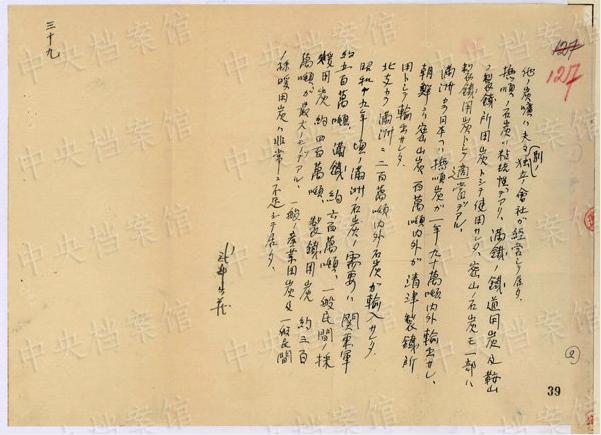 127
127
他ノ炭礦ハ夫々独立ノ會社が経営シテ居タ。
(別ノ)
撫順ノ石炭ハ粘結性デアリ、満鉄ノ鐵道用炭及鞍山
ノ製鐵所用炭トシテ使用サレタ。密山ノ石炭モ一部ハ
製鐵用炭トシテ適當デアル。
満洲カラ日本ヘハ撫順炭が一年九十萬噸内外輸出サレ、
朝鮮ヘ密山炭百萬噸内外が清津製鐵所
用トシテ輸出サレタ。
北支カラ満洲ニ二百萬噸内外石炭が輸入サレタ
昭和十九年頃ノ満洲ノ石炭ノ需要ハ関東軍
約五百萬噸、満鐵約六百萬噸、一般民間ノ採
煖用炭約四百萬噸、製鐵用炭約三百
萬噸が最大ノモノデアル。一般ノ産業用炭及一般民間
ノ採暖用炭ハ非常ニ不足シテ居タ。
三十九
(2)
39
中央档案馆